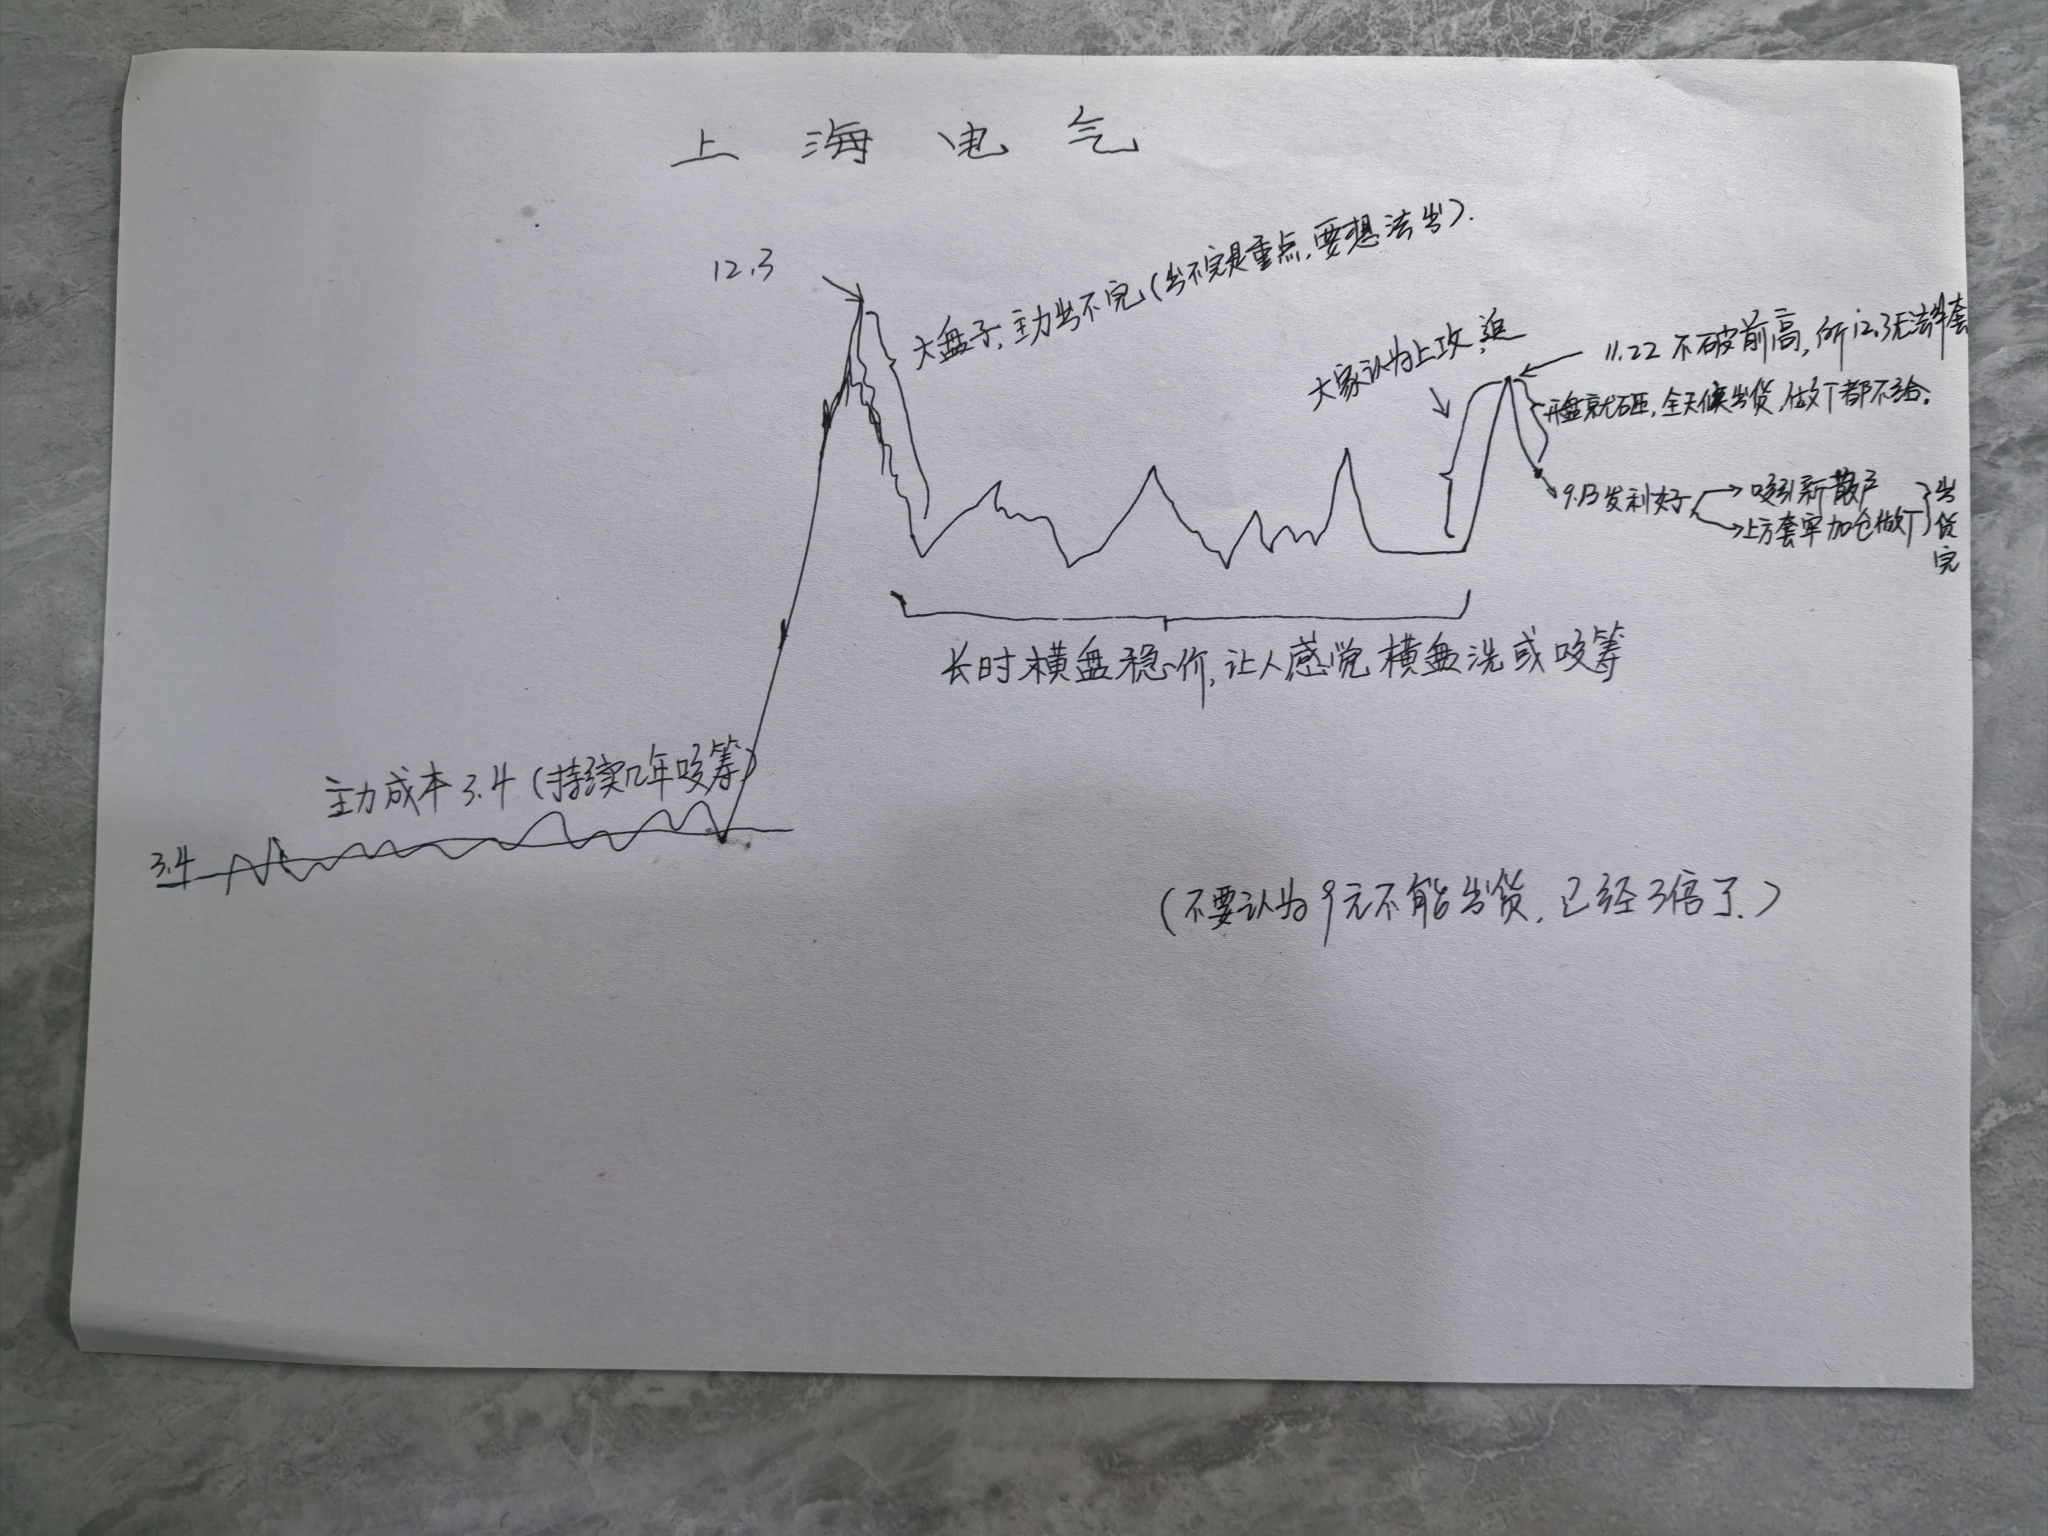 上海电气
12.3
大盘子,主力出不完(出不完是重点,要想法出).
大家认为上攻,追
11.22 不破前高,所12.3无法解套
开盘就砸,全天候出货,做T都不给.
9.13发利好
吸引新散户
上方套牢加仓做T
出货完
长时横盘稳价,让人感觉横盘洗或吸筹
主力成本3.4(持续几年吸筹)
3.4
(不要认为9元不能出货,已经3倍了.)